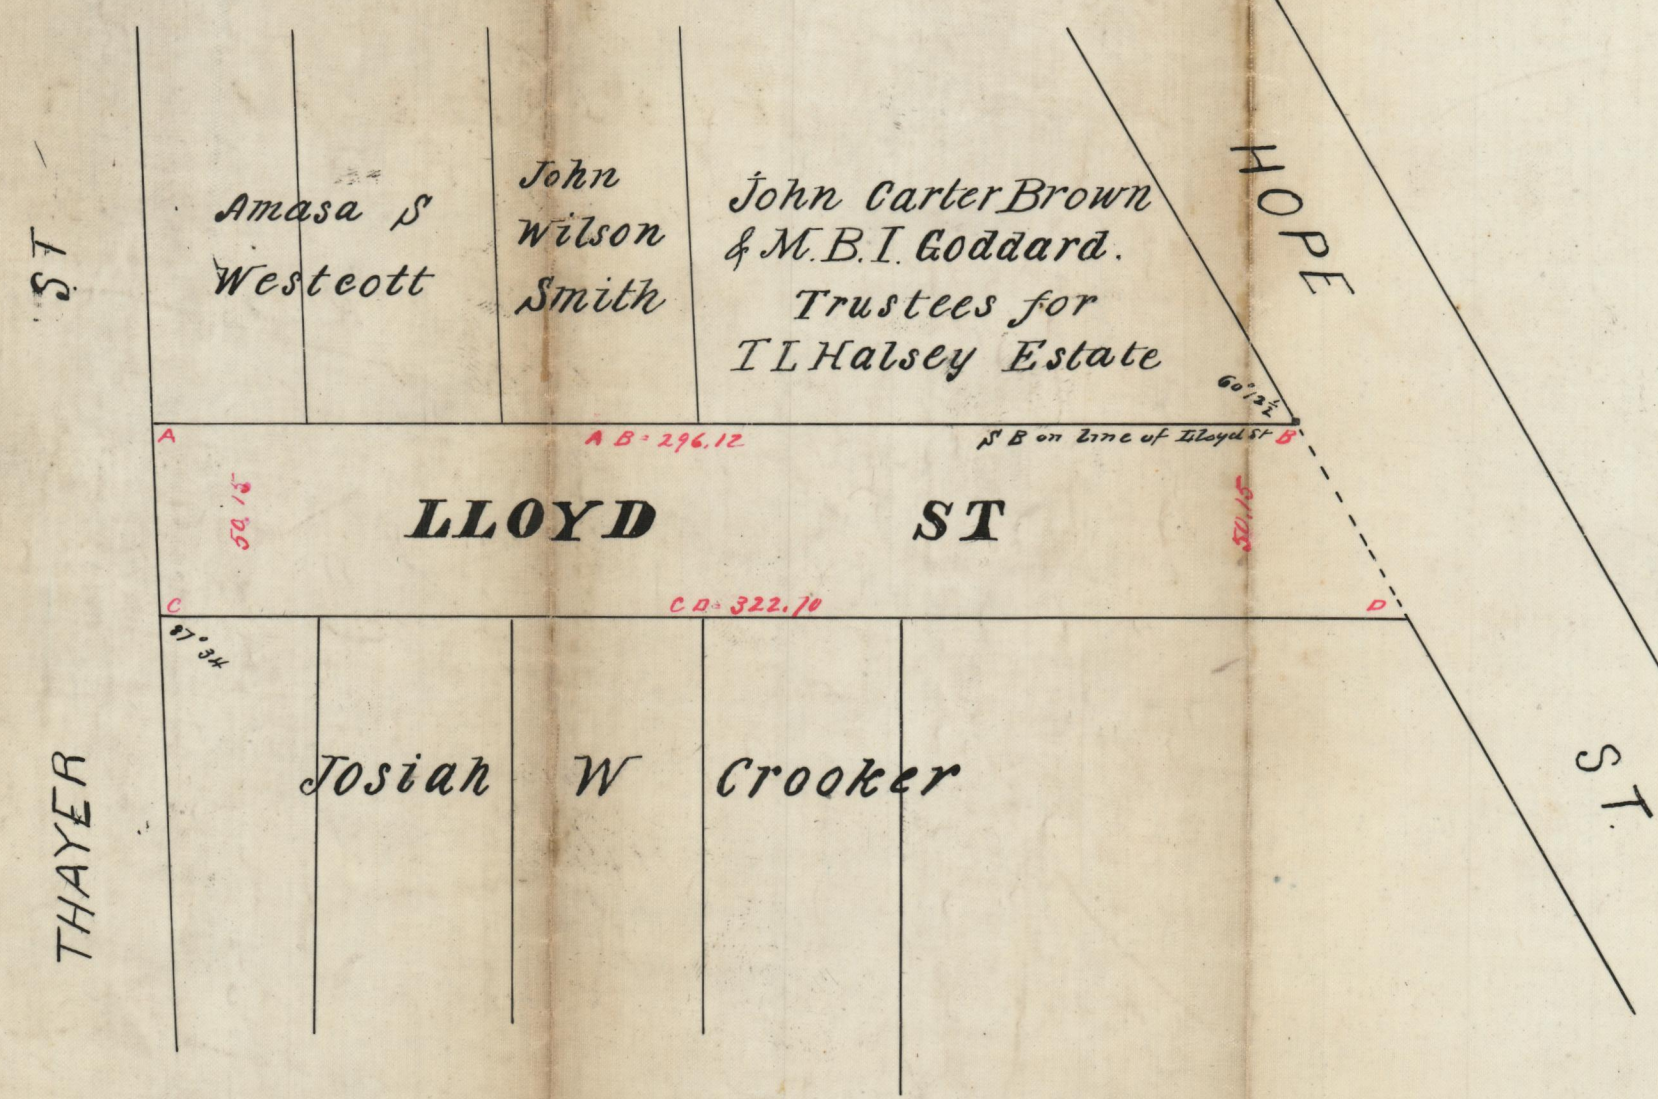 THAYER ST
Amasa S
Westcott
John
Wilson
Smith
John Carter Brown
& M.B.I. Goddard.
Trustees for
T L Halsey Estate
HOPE ST.
60°12½
A
A B = 296.12
S B on line of Lloyd St
B
50.15
LLOYD ST
50.15
C
C D = 322.70
D
87°34
Josiah W Crooker